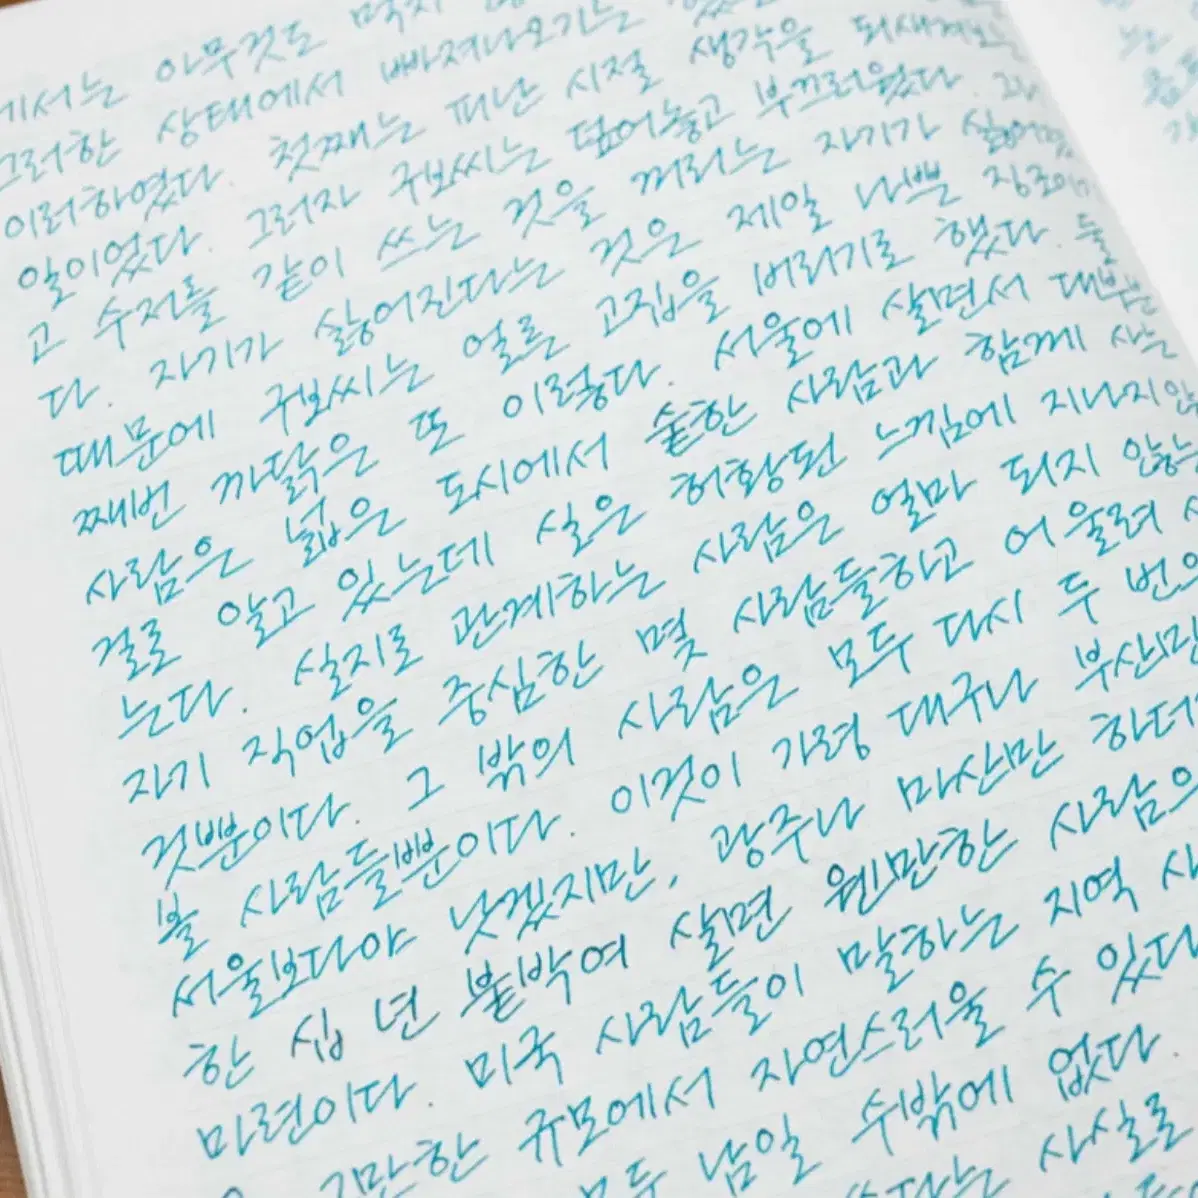 에서는 아무것도 먹지
그러한 상태에서 빠져나오기는
이러하였다. 첫째는 피난 시절 생각을 되새겨보는
일이었다. 그러자 구보씨는 덮어놓고 부끄러웠다.
고 수저를 같이 쓰는 것을 꺼리는 자기가 싫어졌
다. 자기가 싫어진다는 것은 제일 나쁜 징조이기
때문에 구보씨는 얼른 고집을 버리기로 했다. 둘
째번 까닭은 또 이렇다. 서울에 살면서 대부분
사람은 넓은 도시에서 숱한 사람과 함께 사는
걸로 알고 있는데 실은 허황된 느낌에 지나지 않
는다. 실지로 관계하는 사람은 얼마 되지 않는
자기 직업을 중심한 몇 사람들하고 어울려 사
것뿐이다. 그 밖의 사람은 모두 다시 두 번의
볼 사람들뿐이다. 이것이 가령 대구나 부산만
서울보다야 낫겠지만, 광주나 마산만 하더
한 십 년 붙박여 살면 웬만한 사람의
마련이다. 미국 사람들이 말하는 지역 사
그만한 규모에서 자연스러울 수 있다
모두 남일 수밖에 없다.
사실로